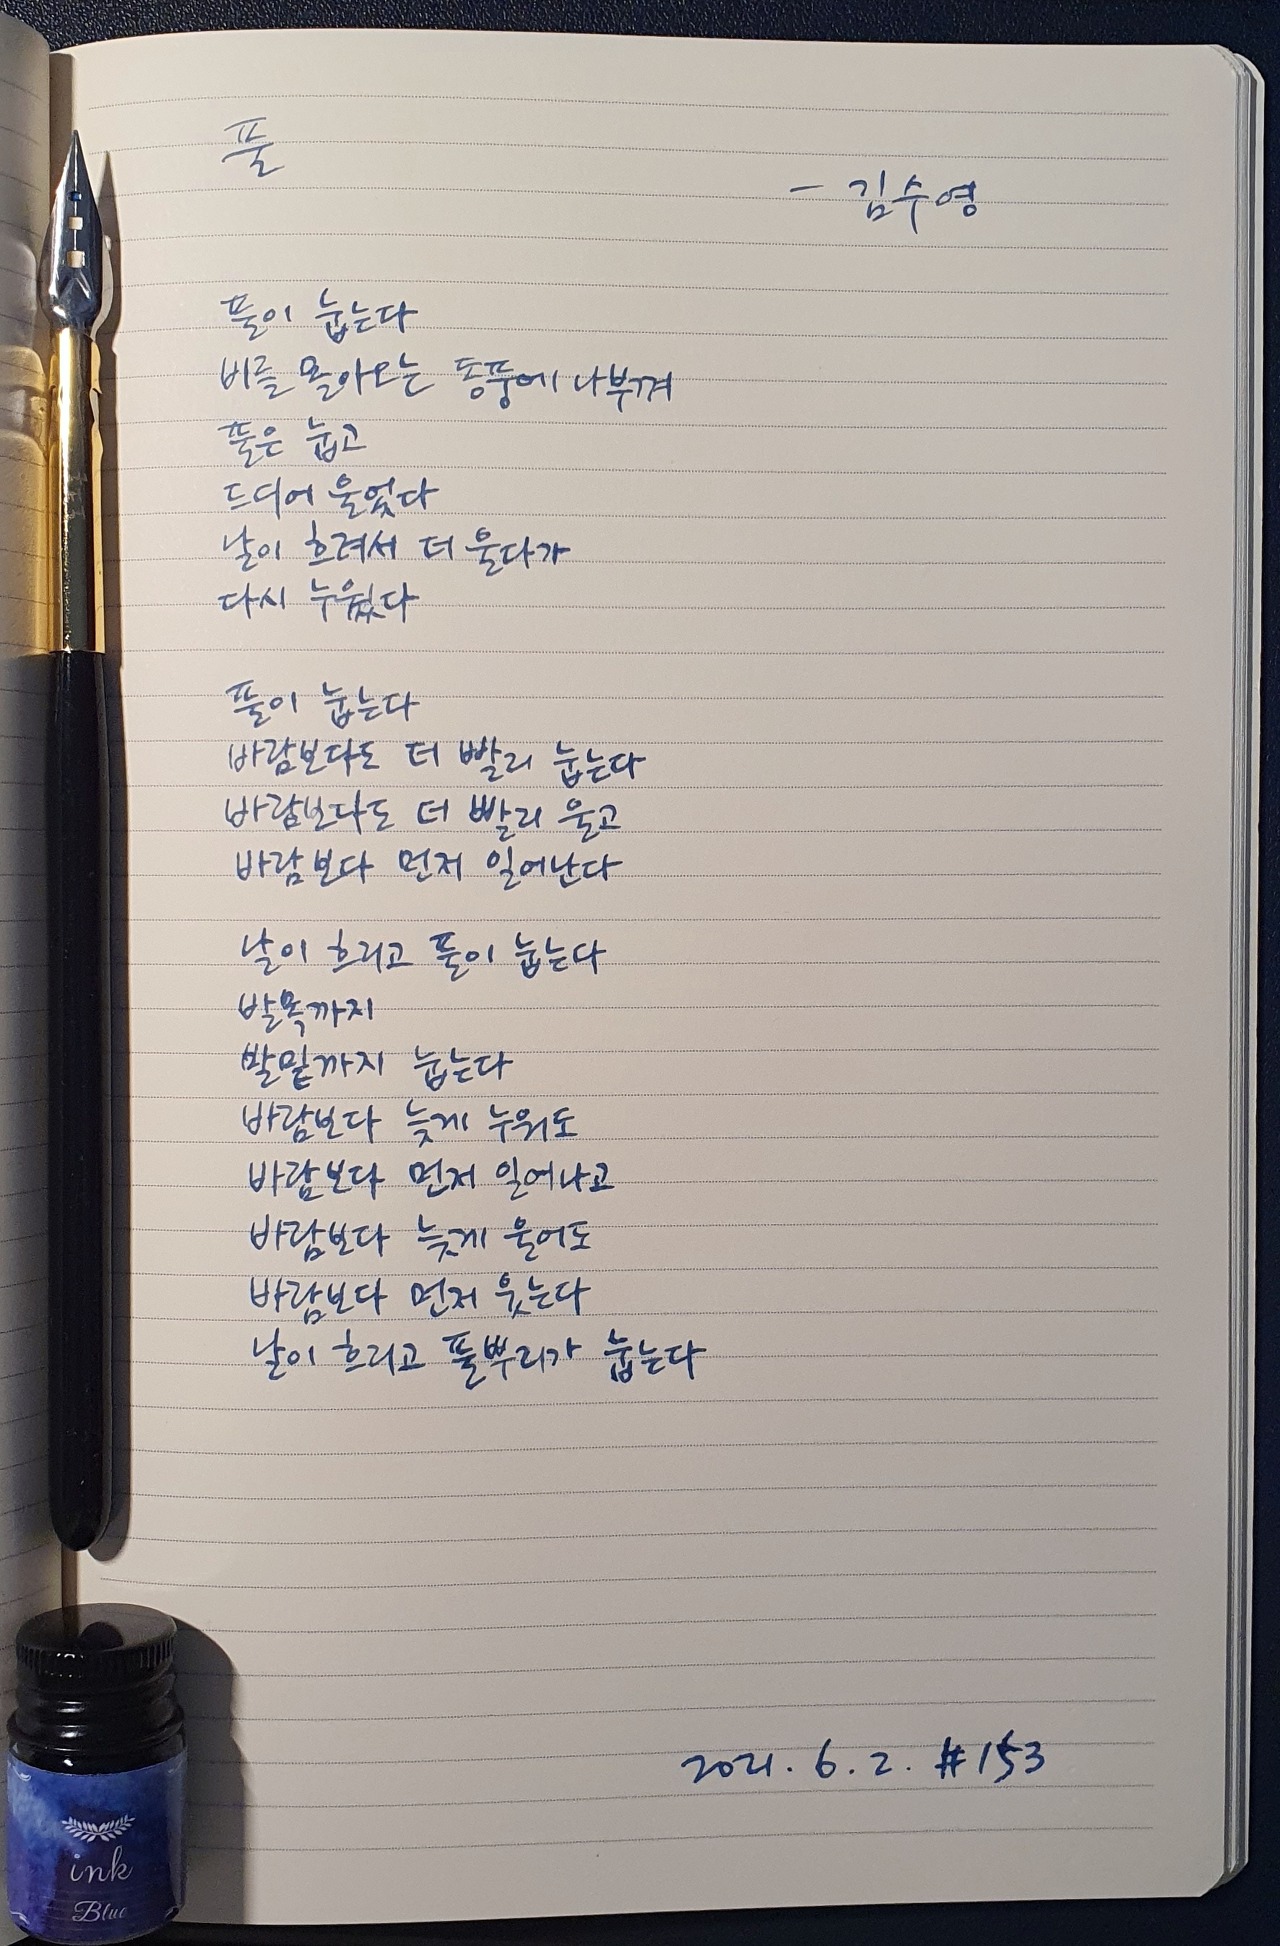 풀
- 김수영
풀이 눕는다
비를 몰아오는 동풍에 나부껴
풀은 눕고
드디어 울었다
날이 흐려서 더 울다가
다시 누웠다
풀이 눕는다
바람보다도 더 빨리 눕는다
바람보다도 더 빨리 울고
바람보다 먼저 일어난다
날이 흐리고 풀이 눕는다
발목까지
발밑까지 눕는다
바람보다 늦게 누워도
바람보다 먼저 일어나고
바람보다 늦게 울어도
바람보다 먼저 웃는다
날이 흐리고 풀뿌리가 눕는다
2021. 6. 2. #153
ink
Blue